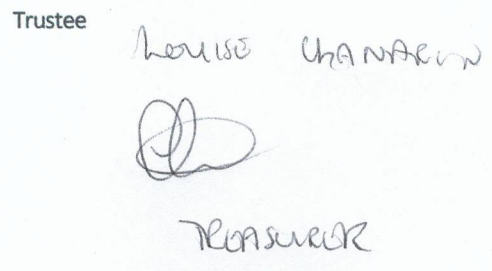 Trustee
LOUISE CHANARIN
TREASURER